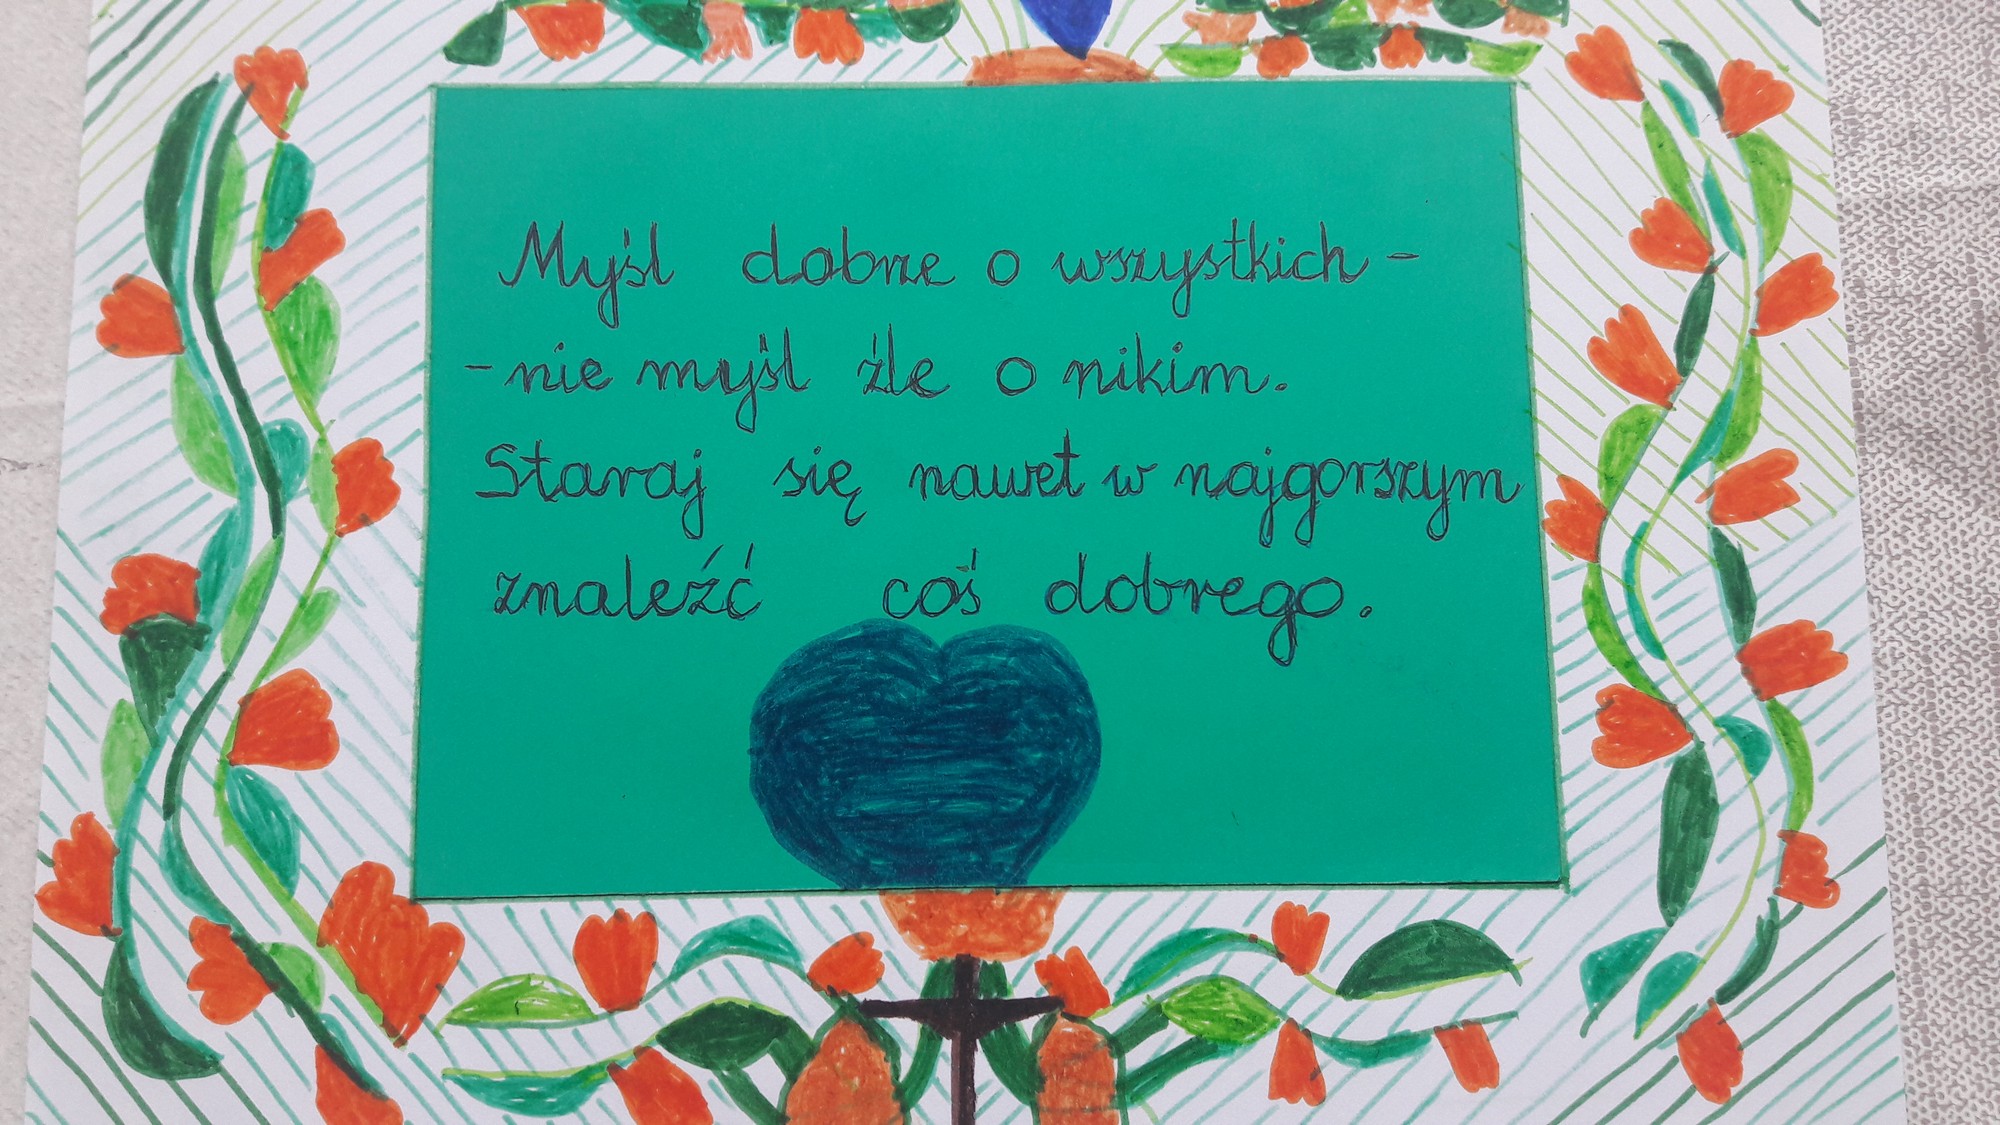 Myśl dobrze o wszystkich -
- nie myśl źle o nikim.
Staraj się nawet w najgorszym
znaleźć coś dobrego.